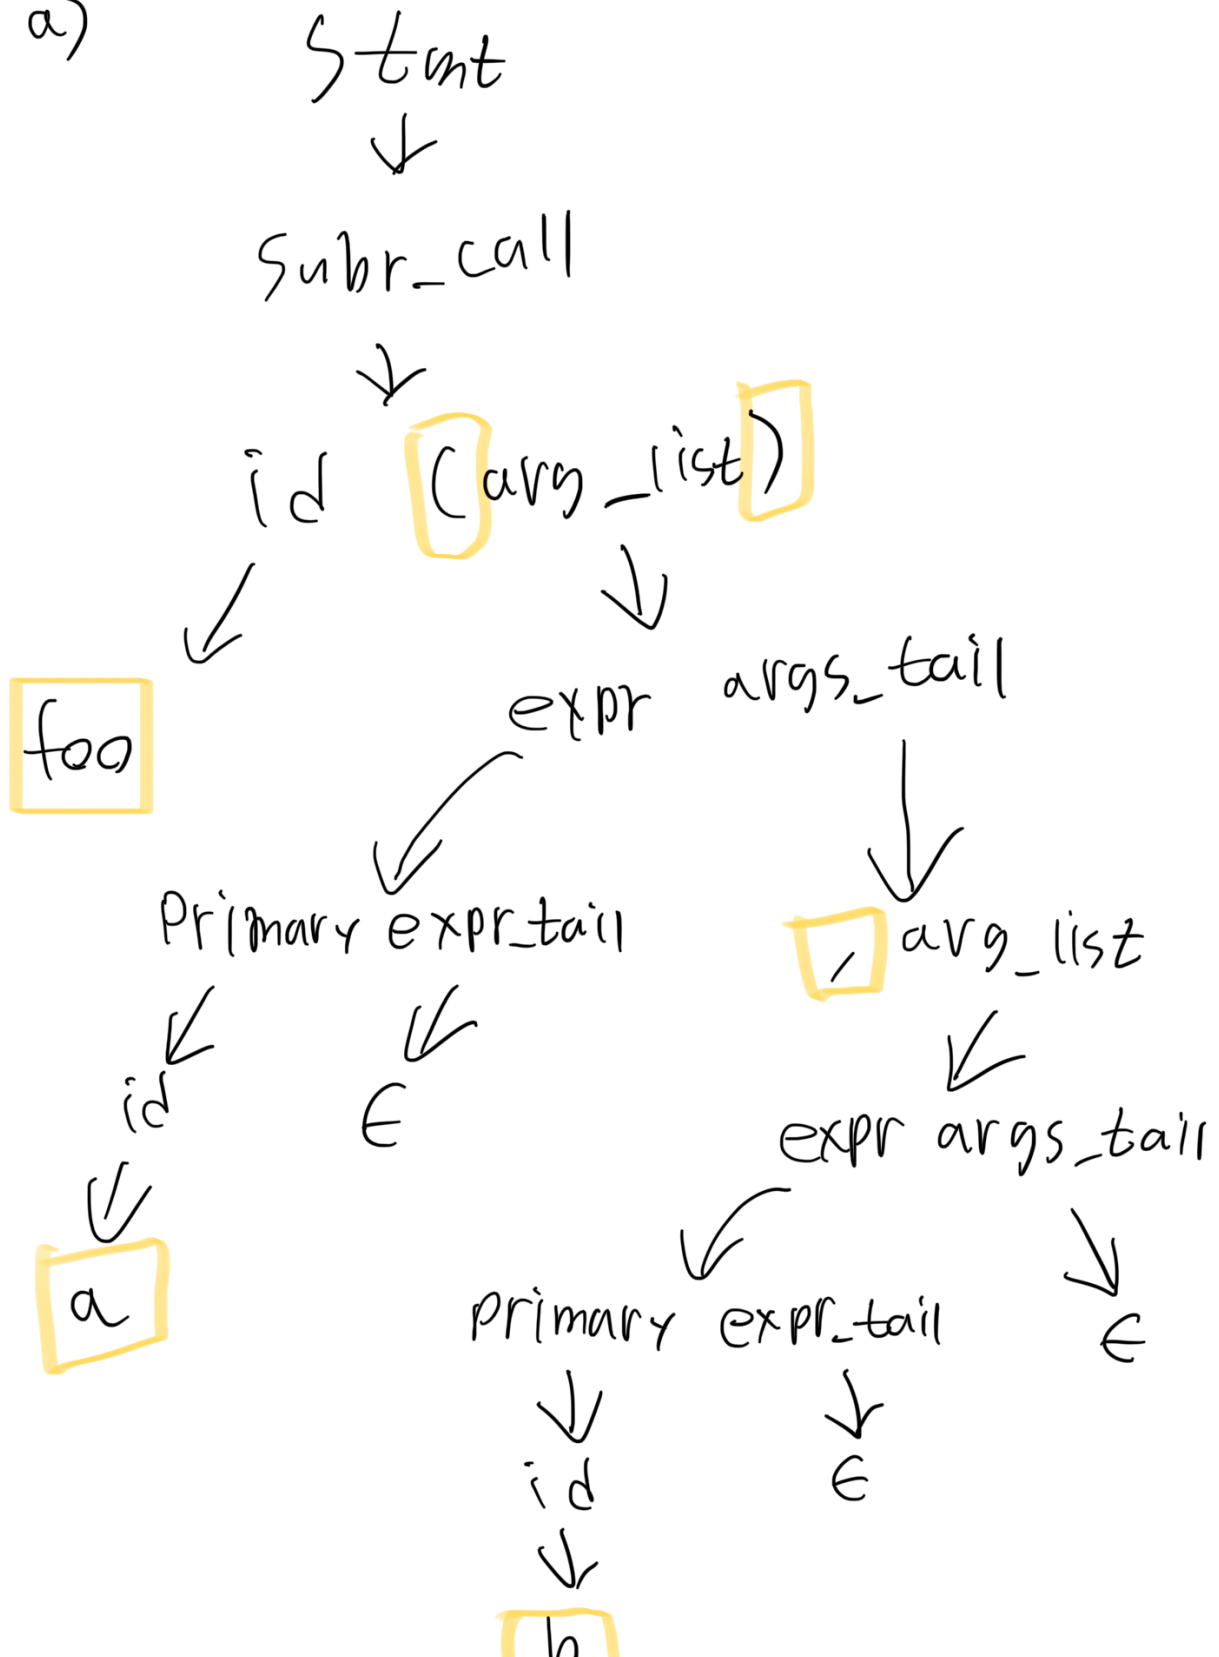 a)
Stmt
Subr_call
id (arg_list)
foo
expr args_tail
Primary expr_tail
, arg_list
id ϵ
expr args_tail
a
primary expr_tail ϵ
id ϵ
b